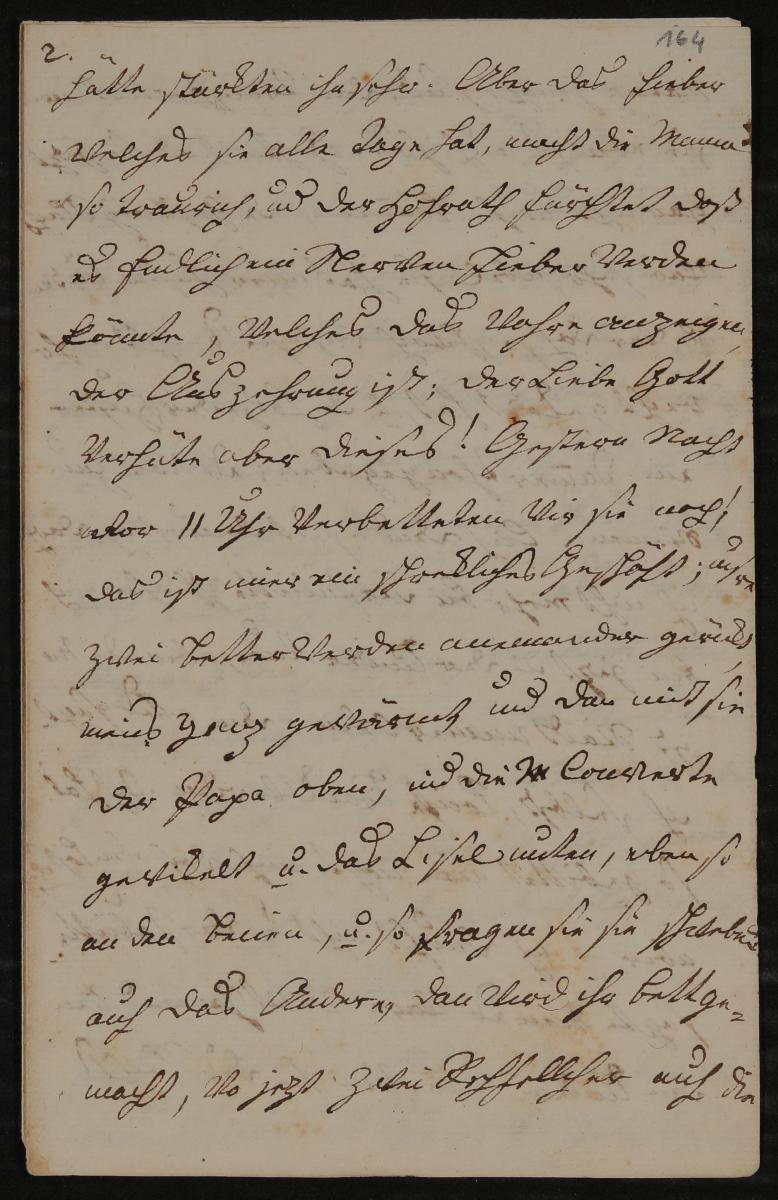 2.
164
hätte stärkten ihn sehr. Aber das fieber
welches sie alle Tage hat, macht die Mama
so traurich, und der Hofrath fürchtet daß
es Endlich ein Nerven Fieber werden
könnte, welches das wahre anzeigen
der Auszehrung ist; der Liebe Gott
verhüte aber dieses! Gestern Nacht
vor 11 Uhr verbetteten wir sie noch!
das ist mier ein schrekliches Geschäft; unsre
zwei better werden aneinander gerückt,
meins ganz gewärmt und dan mit sie
der Papa oben, in die Converte
gewikelt u. das Lisel unten, eben so
an den beinen, u. so tragen sie sie schwebend
auf das Andere, dan wird ihr bett ge=
macht, wo jetzt zwei auf die